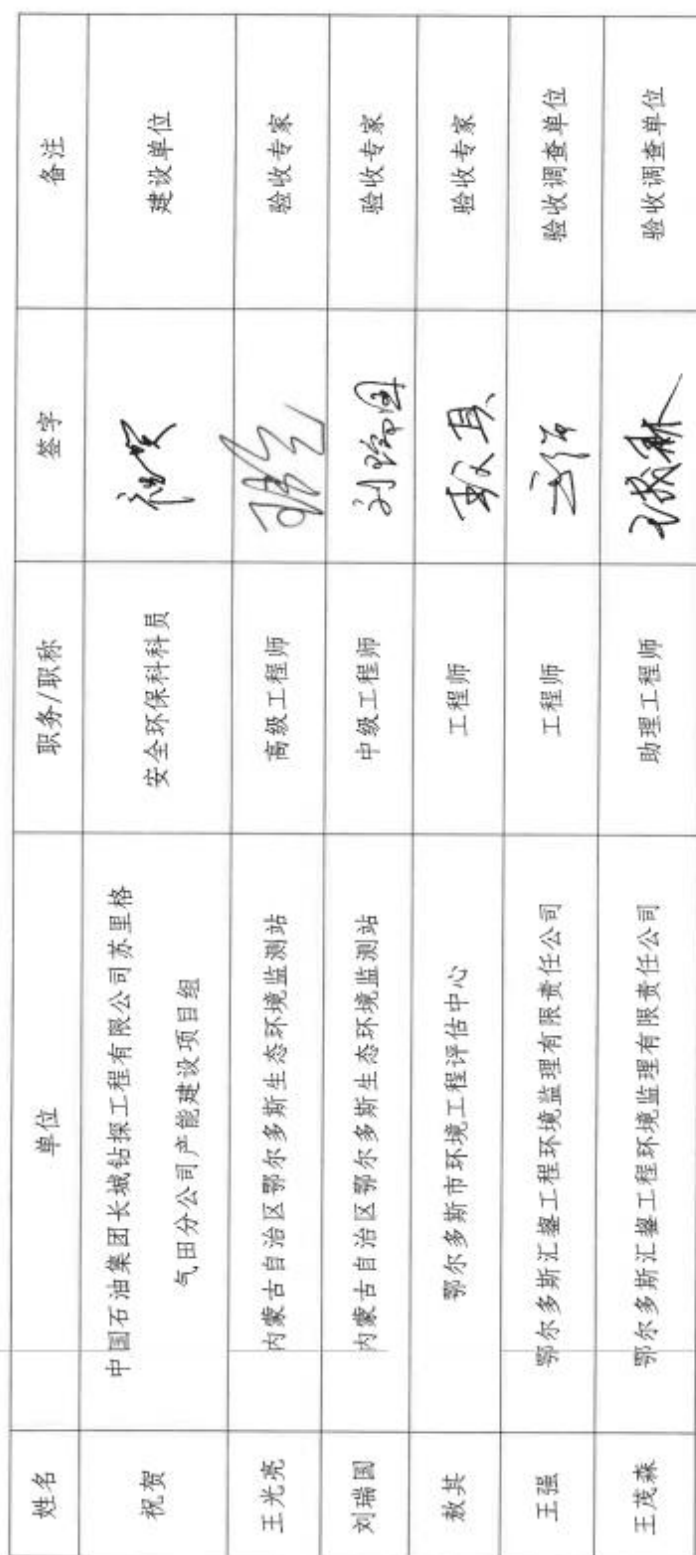 姓名 单位 职务/职称 签字 备注
祝贺 中国石油集团长城钻探工程有限公司苏里格 安全环保科科员 祝贺 建设单位
气田分公司产能建设项目组
王光亮 内蒙古自治区鄂尔多斯生态环境监测站 高级工程师 验收专家
刘瑞国 内蒙古自治区鄂尔多斯生态环境监测站 中级工程师 刘瑞国 验收专家
敖其 鄂尔多斯市环境工程评估中心 工程师 敖其 验收专家
王强 鄂尔多斯汇鋆工程环境监理有限责任公司 工程师 验收调查单位
王茂森 鄂尔多斯汇鋆工程环境监理有限责任公司 助理工程师 王茂森 验收调查单位